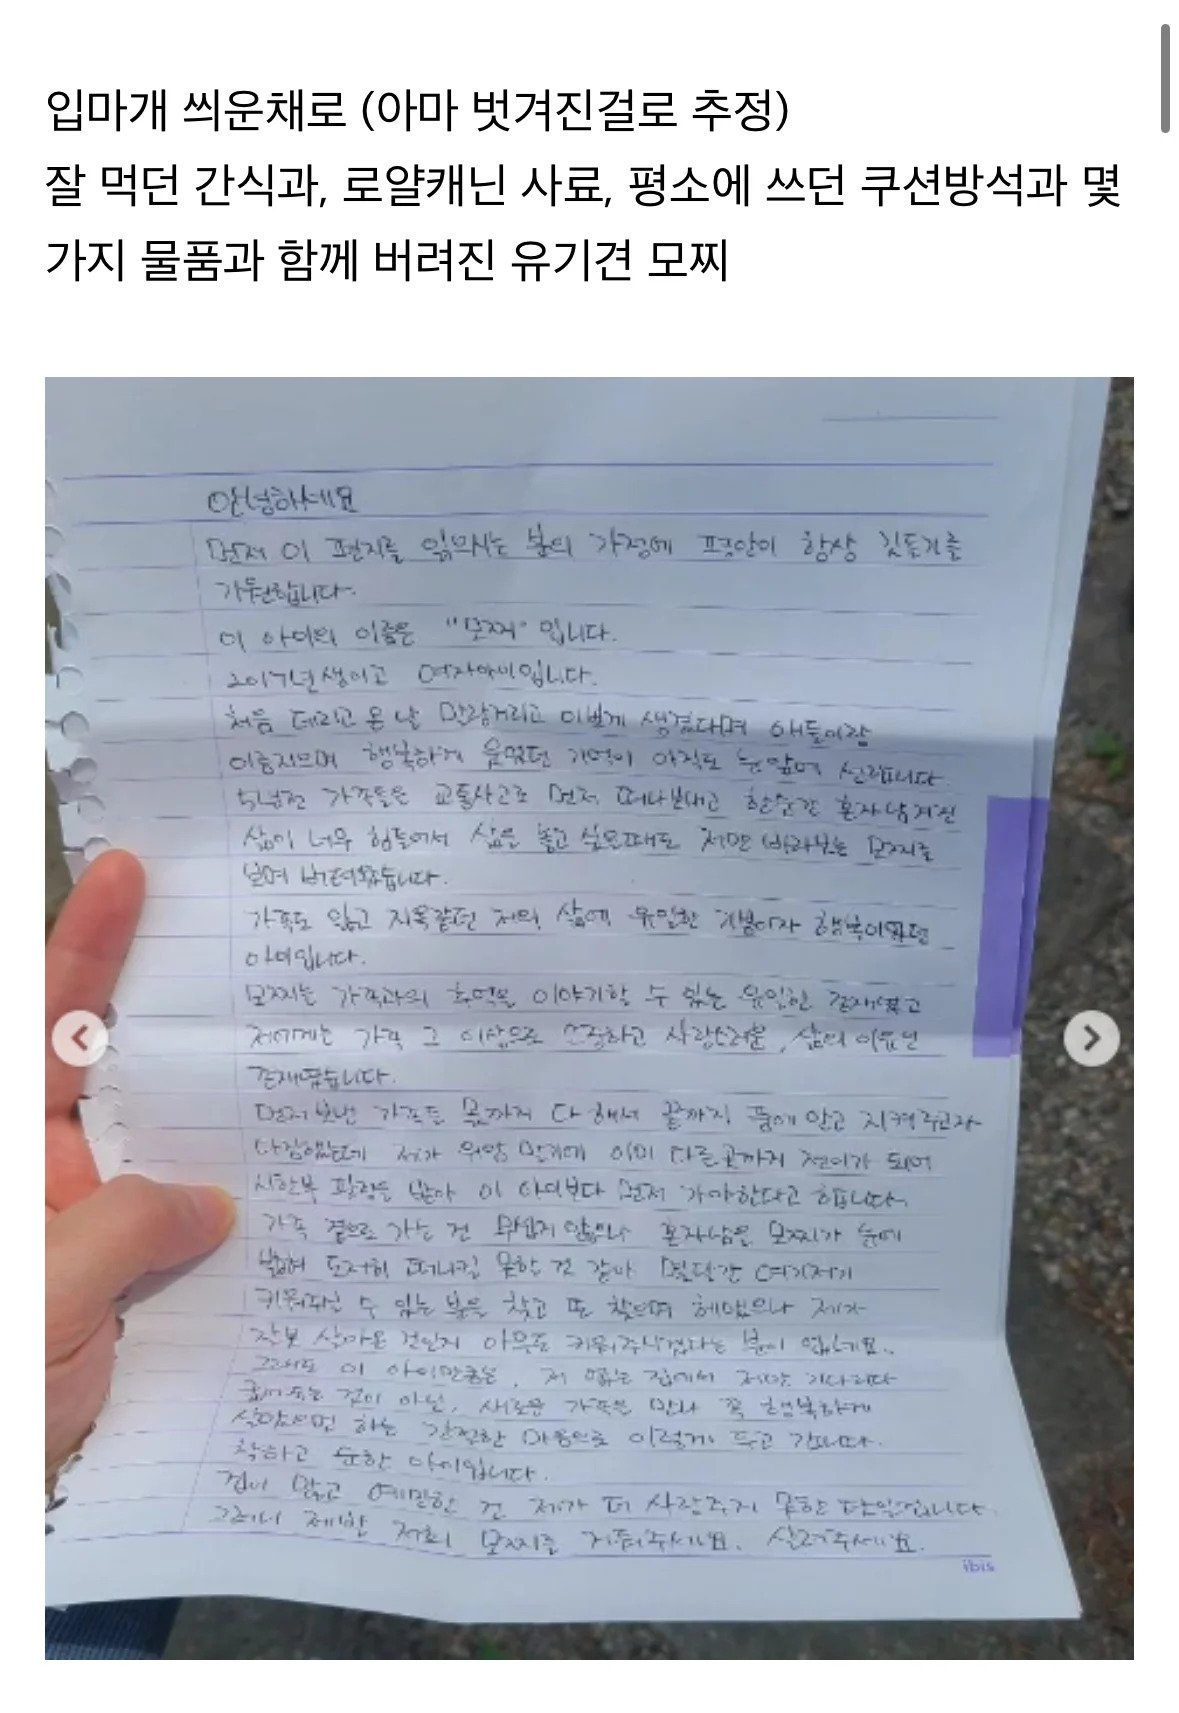 입마개 씌운채로 (아마 벗겨진걸로 추정)
잘 먹던 간식과, 로얄캐닌 사료, 평소에 쓰던 쿠션방석과 몇
가지 물품과 함께 버려진 유기견 모찌
안녕하세요
먼저 이 편지를 읽으시는 분의 가정에 평안이 항상 깃들기를
기원합니다.
이 아이의 이름은 "모찌" 입니다.
2017년생이고 여자아이입니다.
처음 데리고 온 날 말랑거리고 이쁘게 생겼다며 애들이랑
이름지으며 행복하게 웃었던 기억이 아직도 눈앞에 선합니다.
5년전 가족들은 교통사고로 먼저 떠나보내고 한순간 혼자 남겨진
삶이 너무 힘들어서 삶을 놓고 싶을때도 저만 바라보는 모찌를
보며 버텨왔습니다.
가족도 잃고 지옥같던 저의 삶에 유일한 기쁨이자 행복이었던
아이입니다.
모찌는 가족과의 추억을 이야기할 수 있는 유일한 존재였고
저에게는 가족 그 이상으로 소중하고 사랑스러운, 삶의 이유인
존재였습니다.
먼저보낸 가족들 몫까지 다 해서 끝까지 품에 안고 지켜주고자
다짐했는데 제가 위암 말기에 이미 다른곳까지 전이가 되어
시한부 판정을 받아 이 아이보다 먼저 가야한다고 합니다.
가족 곁으로 가는 건 무섭지 않으나 혼자남을 모찌가 눈에
밟혀 도저히 떠나질 못할 것 같아 몇달간 여기저기
키워주실 수 있는 분을 찾고 또 찾으며 헤맸으나 제가
잘못 살아온 것인지 아무도 키워주시겠다는 분이 없네요..
그래도 이 아이만큼은, 저 없는 집에서 저만 기다리다
굶어죽는 것이 아닌, 새로운 가족을 만나 꼭 행복하게
살았으면 하는 간절한 마음으로 이렇게 두고 갑니다.
착하고 순한 아이입니다.
겁이 많고 예민한 건 제가 더 사랑주지 못한 탓입니다.
그러니 제발 저희 모찌를 거둬주세요. 살려주세요.
ibis